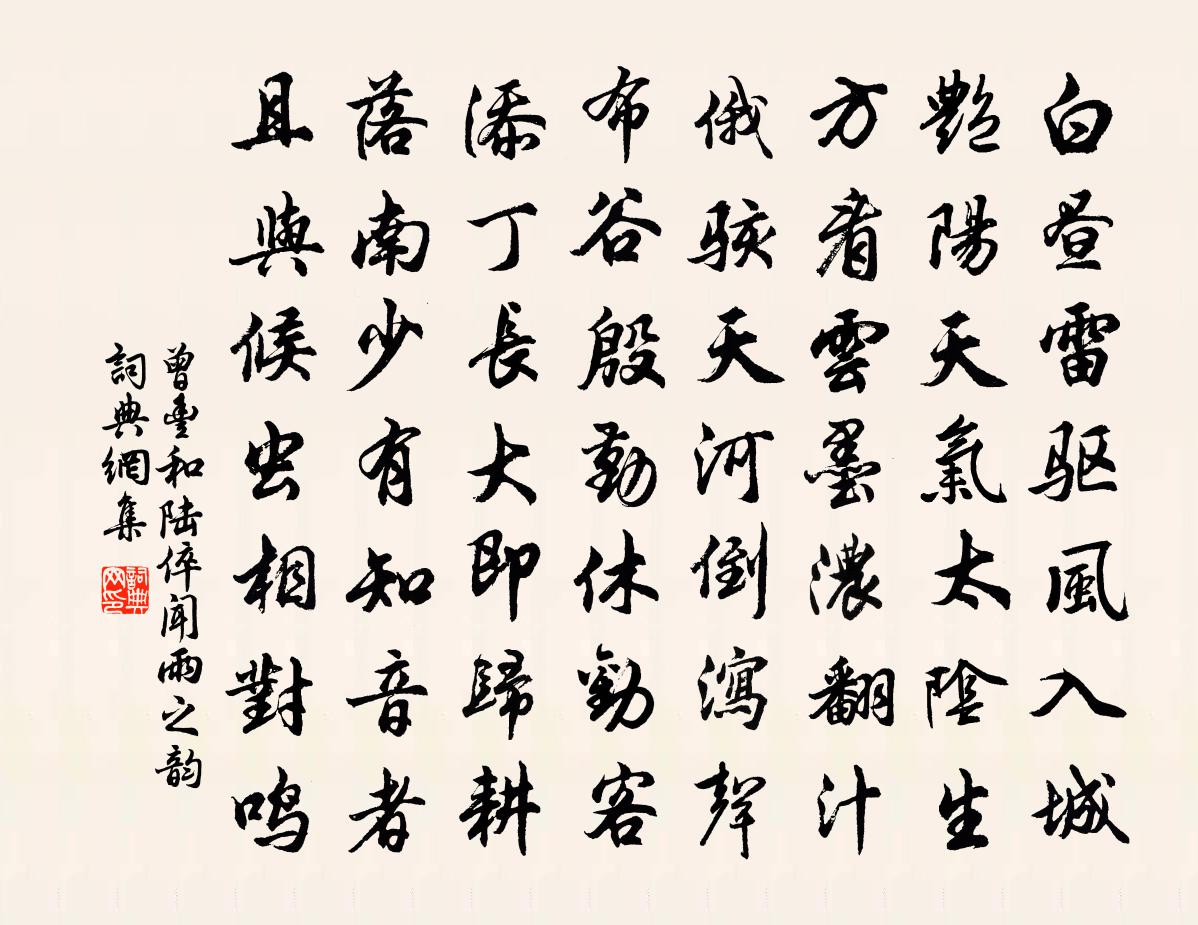 白昼雷驱風入城
艷陽天氣太陰生
方看雲墨濃翻汁
俄駭天河倒瀉聲
布谷殷勤休勸客
添丁長大即歸耕
落南少有知音者
且與候虫相對鸣
曾豐和陆倅聞雨之韵
詞典網集
詞典网印